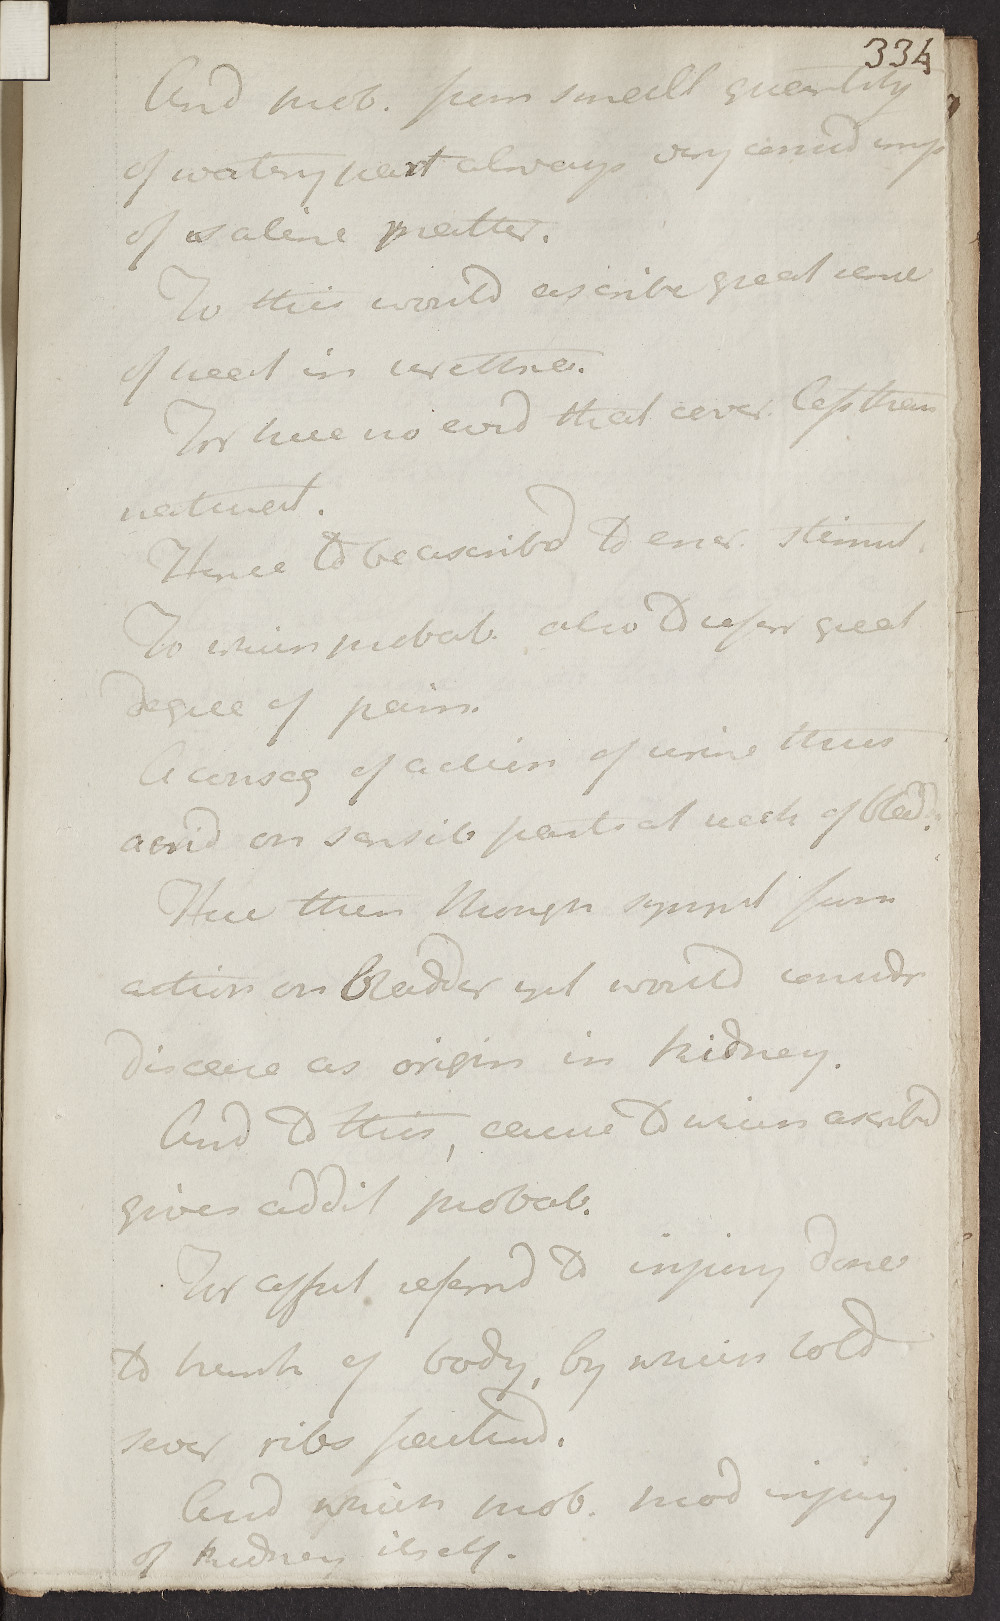 334
And prob. from small quantity
of watery part always very consid imp
of saline matter.
To this would ascribe great cause
of heat in urethra.
For have no evid that ever less than
natural.
Hence to be ascribd to stimul.
To which probab. also to refer great
degree of pain.
A conseq of action of urine thus
acrid on sensib parts at neck of bladd.
Here then though sympt from
action on bladder yet would consider
disease as origin in kidney.
And to this, cause to which ascribd
gives addit probab.
For affect referrd to injury done
to trunk of body, by which told
sever ribs fracturd.
And which prob. prod injury
of kidney itself.